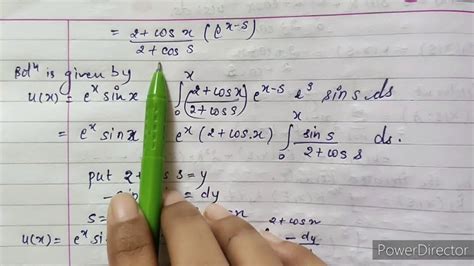 = 2+cos x / 2+cos s (e^x-s)
Sol^n is given by
u(x) = e^x sin x ∫_0^x (2+cosx / 2+cos s) e^x-s e^s sin s ds
= e^x sin x e^x (2+cos x) ∫_0^x sin s / 2+cos s ds.
put 2+ s = y
= dy
s =
2+cos x
u(x) = e^x dy
PowerDirector